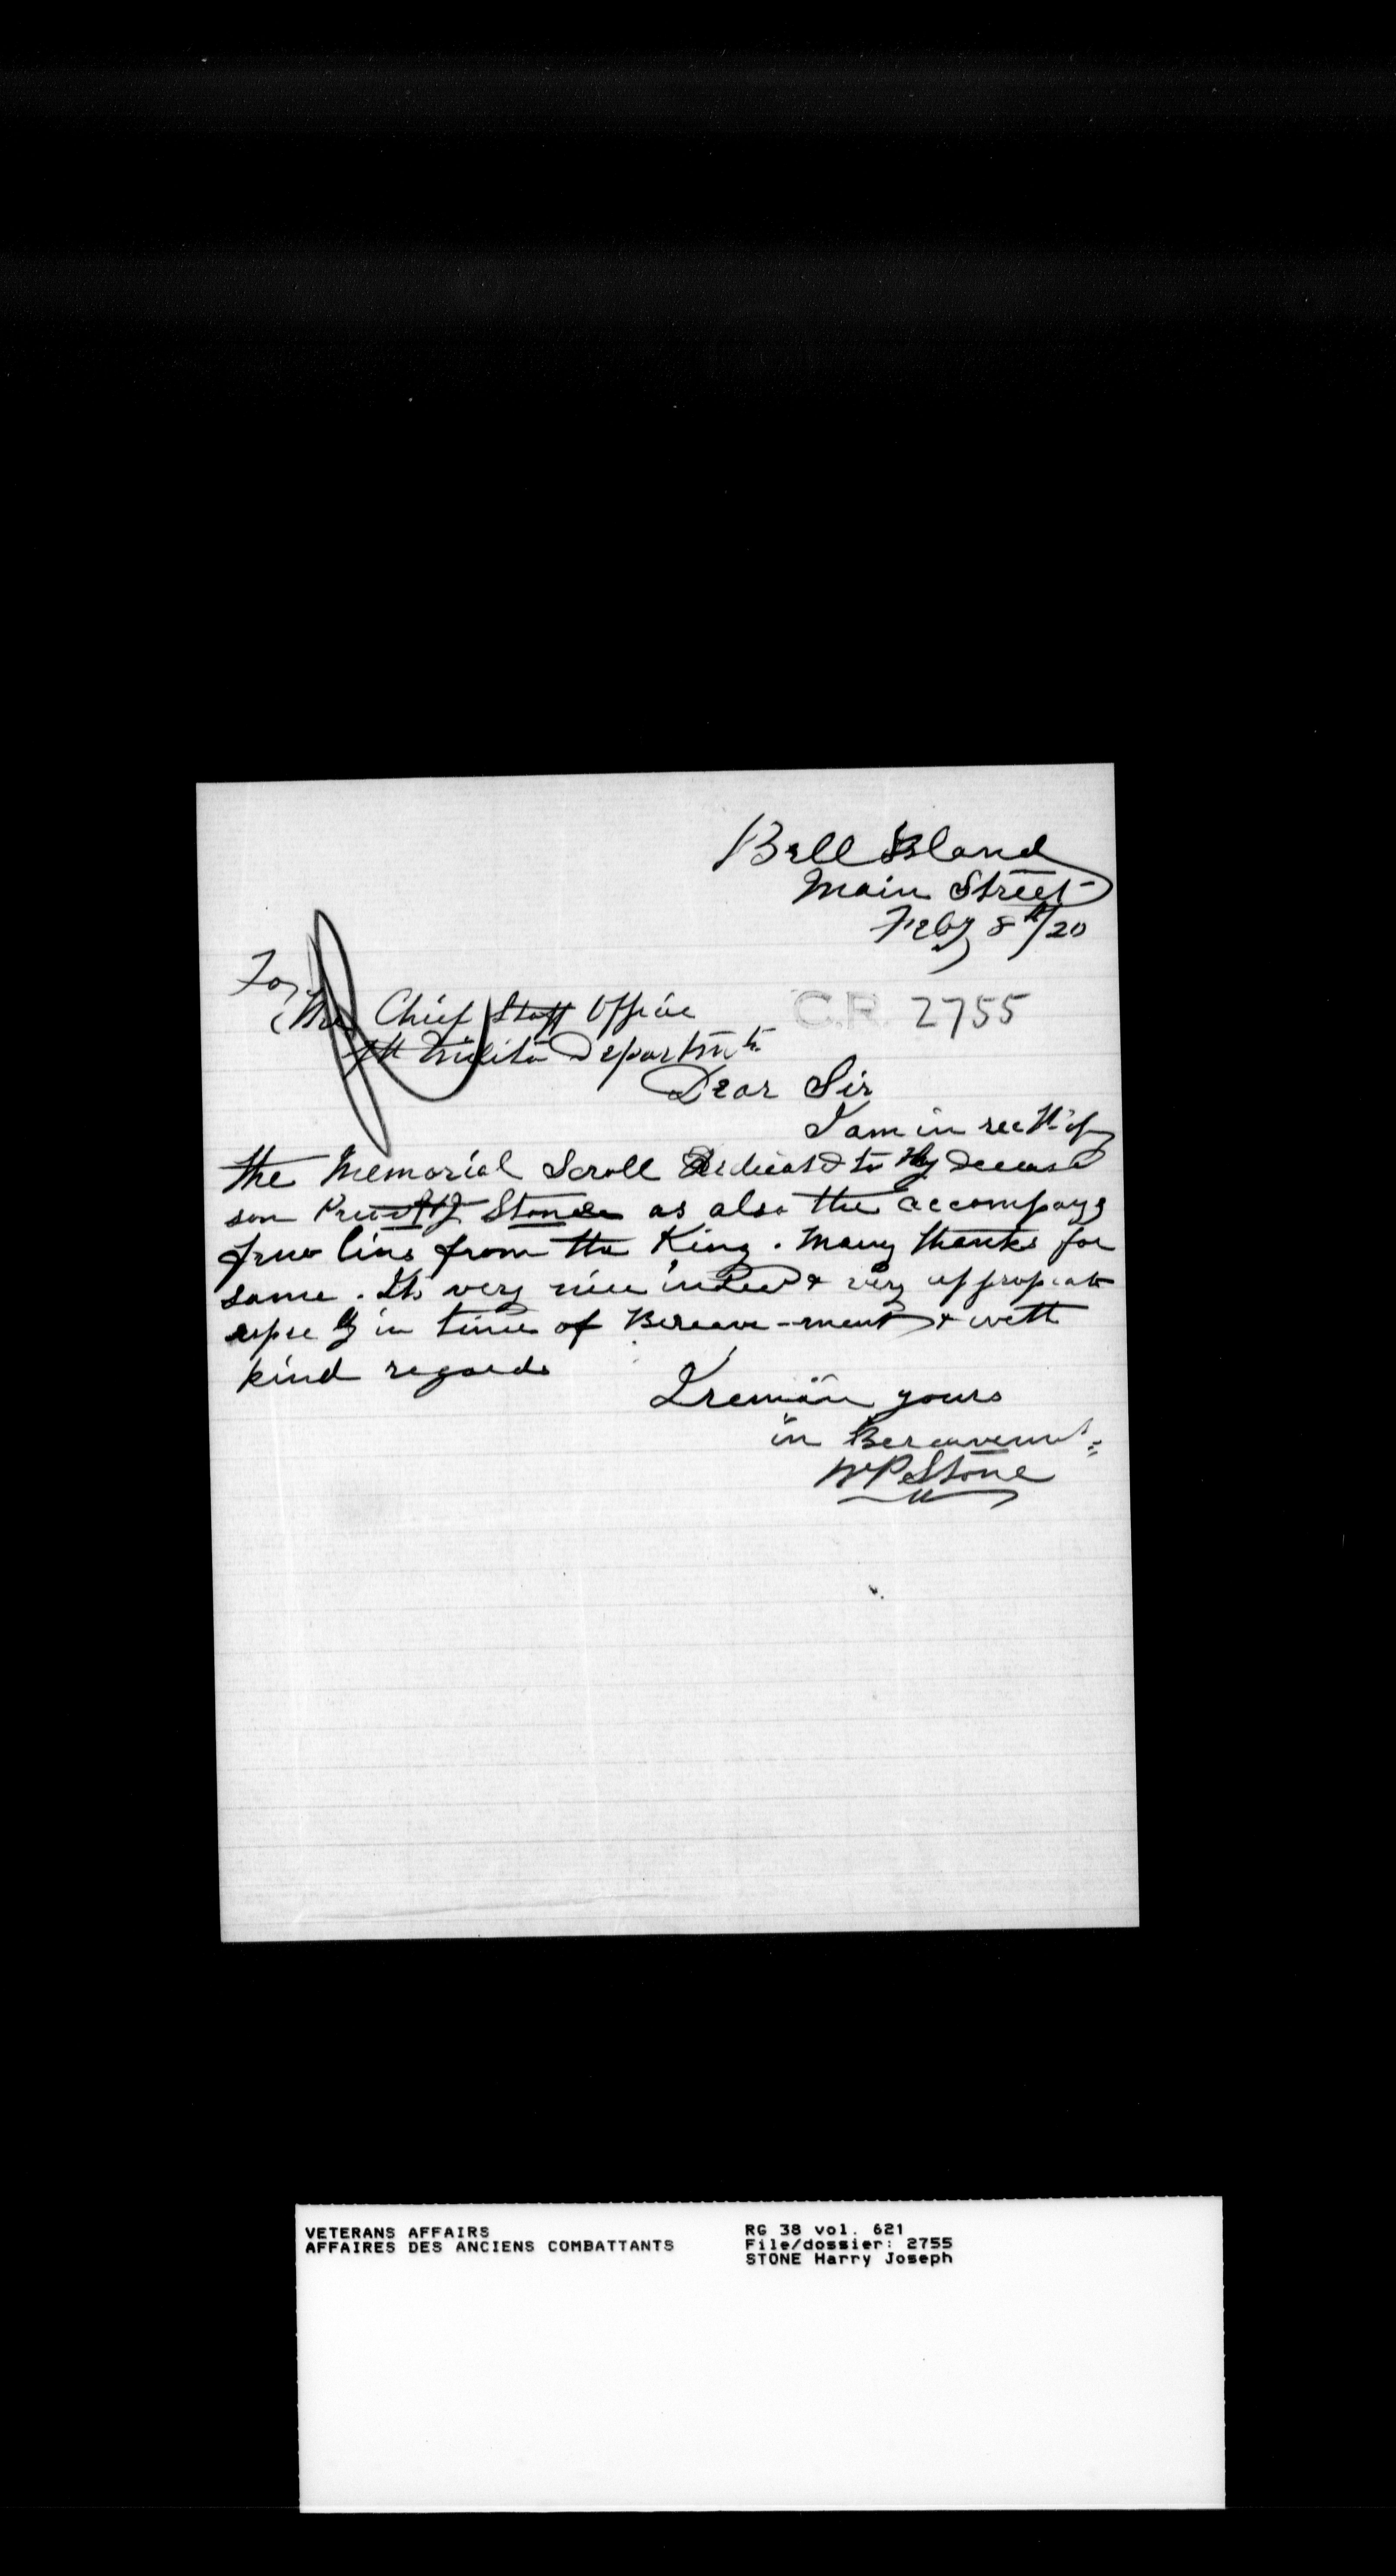 Bell Island
Main Street
Feby 8th/20
To
The Chief Staff Office
Militia Department
C.R. 2755
Dear Sir
I am in rect of
the Memorial Scroll Dedicated to My deceased
son Stone as also the accompayg
few lins from the King. Many thanks for
same. Its very nice indeed & very appropiate
in time of Bereave-ment & with
kind regards
I remain yours
in Bereavement
WP Stone
VETERANS AFFAIRS
AFFAIRES DES ANCIENS COMBATTANTS
RG 38 vol. 621
File/dossier: 2755
STONE Harry Joseph